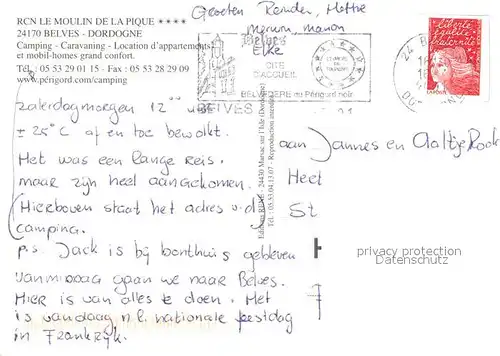 RCN LE MOULIN DE LA PIQUE ****
24170 BELVES - DORDOGNE
Camping - Caravaning - Location d'appartements
et mobil-homes grand confort.
Tél : 05 53 29 01 15 - Fax : 05 53 28 29 09
www.périgord.com/camping
Groeten Reinder, Hettie
Merwin, Manon
Elke
BELVES
CITE
D'ACCUEIL
BELVEDERE du Périgord noir
BELVES
liberté
égalité
fraternité
zaterdagmorgen 12⁰⁰ uur
± 25°C af en toe bewolkt.
Het was een lange reis.
maar zijn heel aangekomen.
(Hierboven staat het adres v.d.
camping.
p.s. Jack is bij benthuis gebleven
vanmiddag gaan we naar Belves.
Hier is van alles te doen. Het
is vandaag n.l. nationale feestdag
in Frankrijk.
24430 Marsac sur l'Isle (Dordogne)
Tél. : 05.53.04.13.07 - Reproduction interdite
aan Jannes en Aaltje Rook
Heet
St
privacy protection
Datenschutz